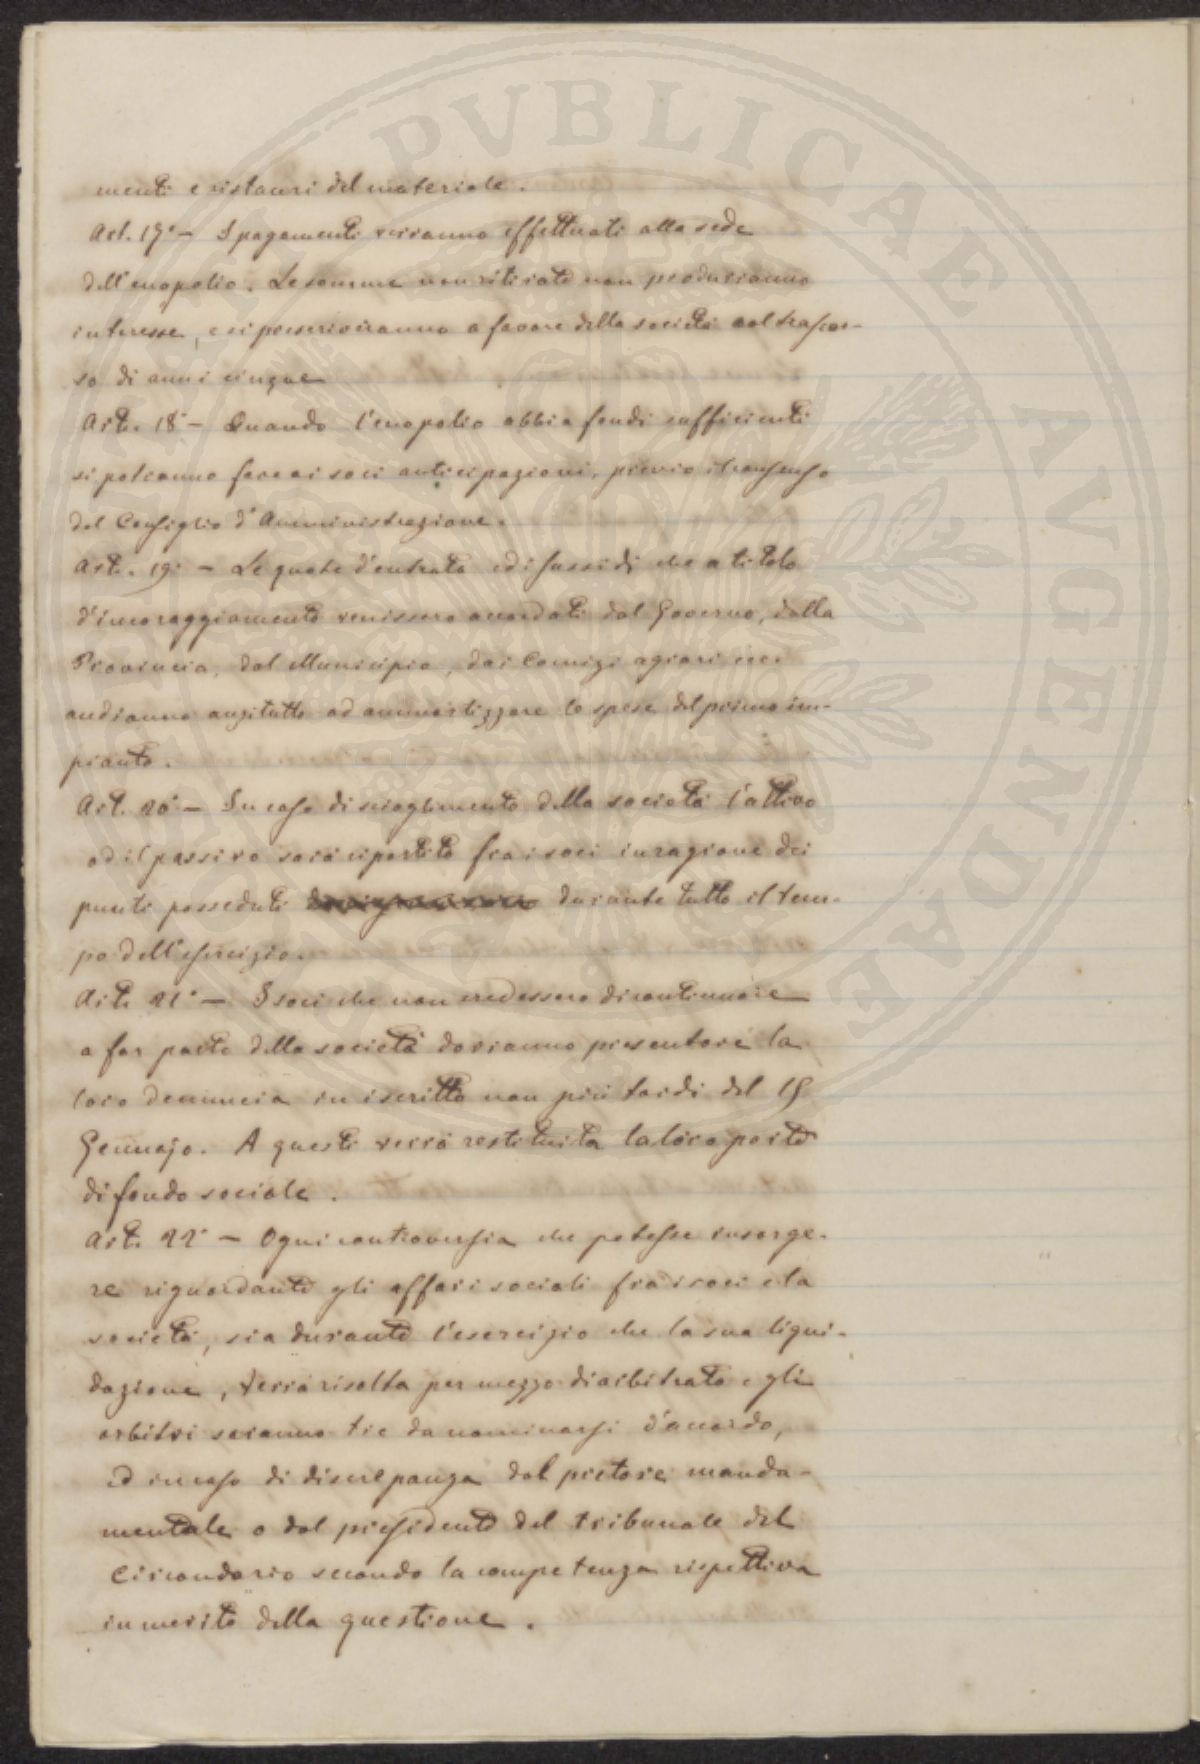 menti e ristauri del materiale.
Art. 17° — I pagamenti verranno effettuati alla sede
dell'enopolio. Le somme non ritirate non produrranno
interesse, e si prescriveranno a favore della società col trascor-
so di anni cinque
Art. 18° — Quando l'enopolio abbia fondi sufficienti
si potranno fare ai soci anticipazioni, previo il consenso
del Consiglio d'Amministrazione.
Art. 19° — Le quote d'entrata ed i sussidi che a titolo
d'incoraggiamento venissero accordati dal Governo, dalla
Provincia, dal Municipio, dai Comizi agrari ecc.
andranno anzitutto ad ammortizzare le spese del primo im-
pianto.
Art. 20° — In caso di scioglimento della società l'attivo
od il passivo sarà ripartito fra i soci in ragione dei
punti posseduti durante tutto il tem-
po dell'esercizio.
Art. 21° — I soci che non credessero di continuare
a far parte della società dovranno presentare la
loro denuncia in iscritto non più tardi del 15
Gennajo. A questi verrà restituita la loro parte
di fondo sociale.
Art. 22° — Ogni controversia che potesse insorge-
re riguardante gli affari sociali fra i soci e la
società, sia durante l'esercizio che la sua liqui-
dazione, verrà risolta per mezzo di arbitrato e gli
arbitri saranno tre da nominarsi d'accordo,
ed in caso di discrepanza dal pretore manda-
mentale o dal presidente del tribunale del
Circondario secondo la competenza rispettiva
in merito della questione.
PVBLICAE AVGENDAE